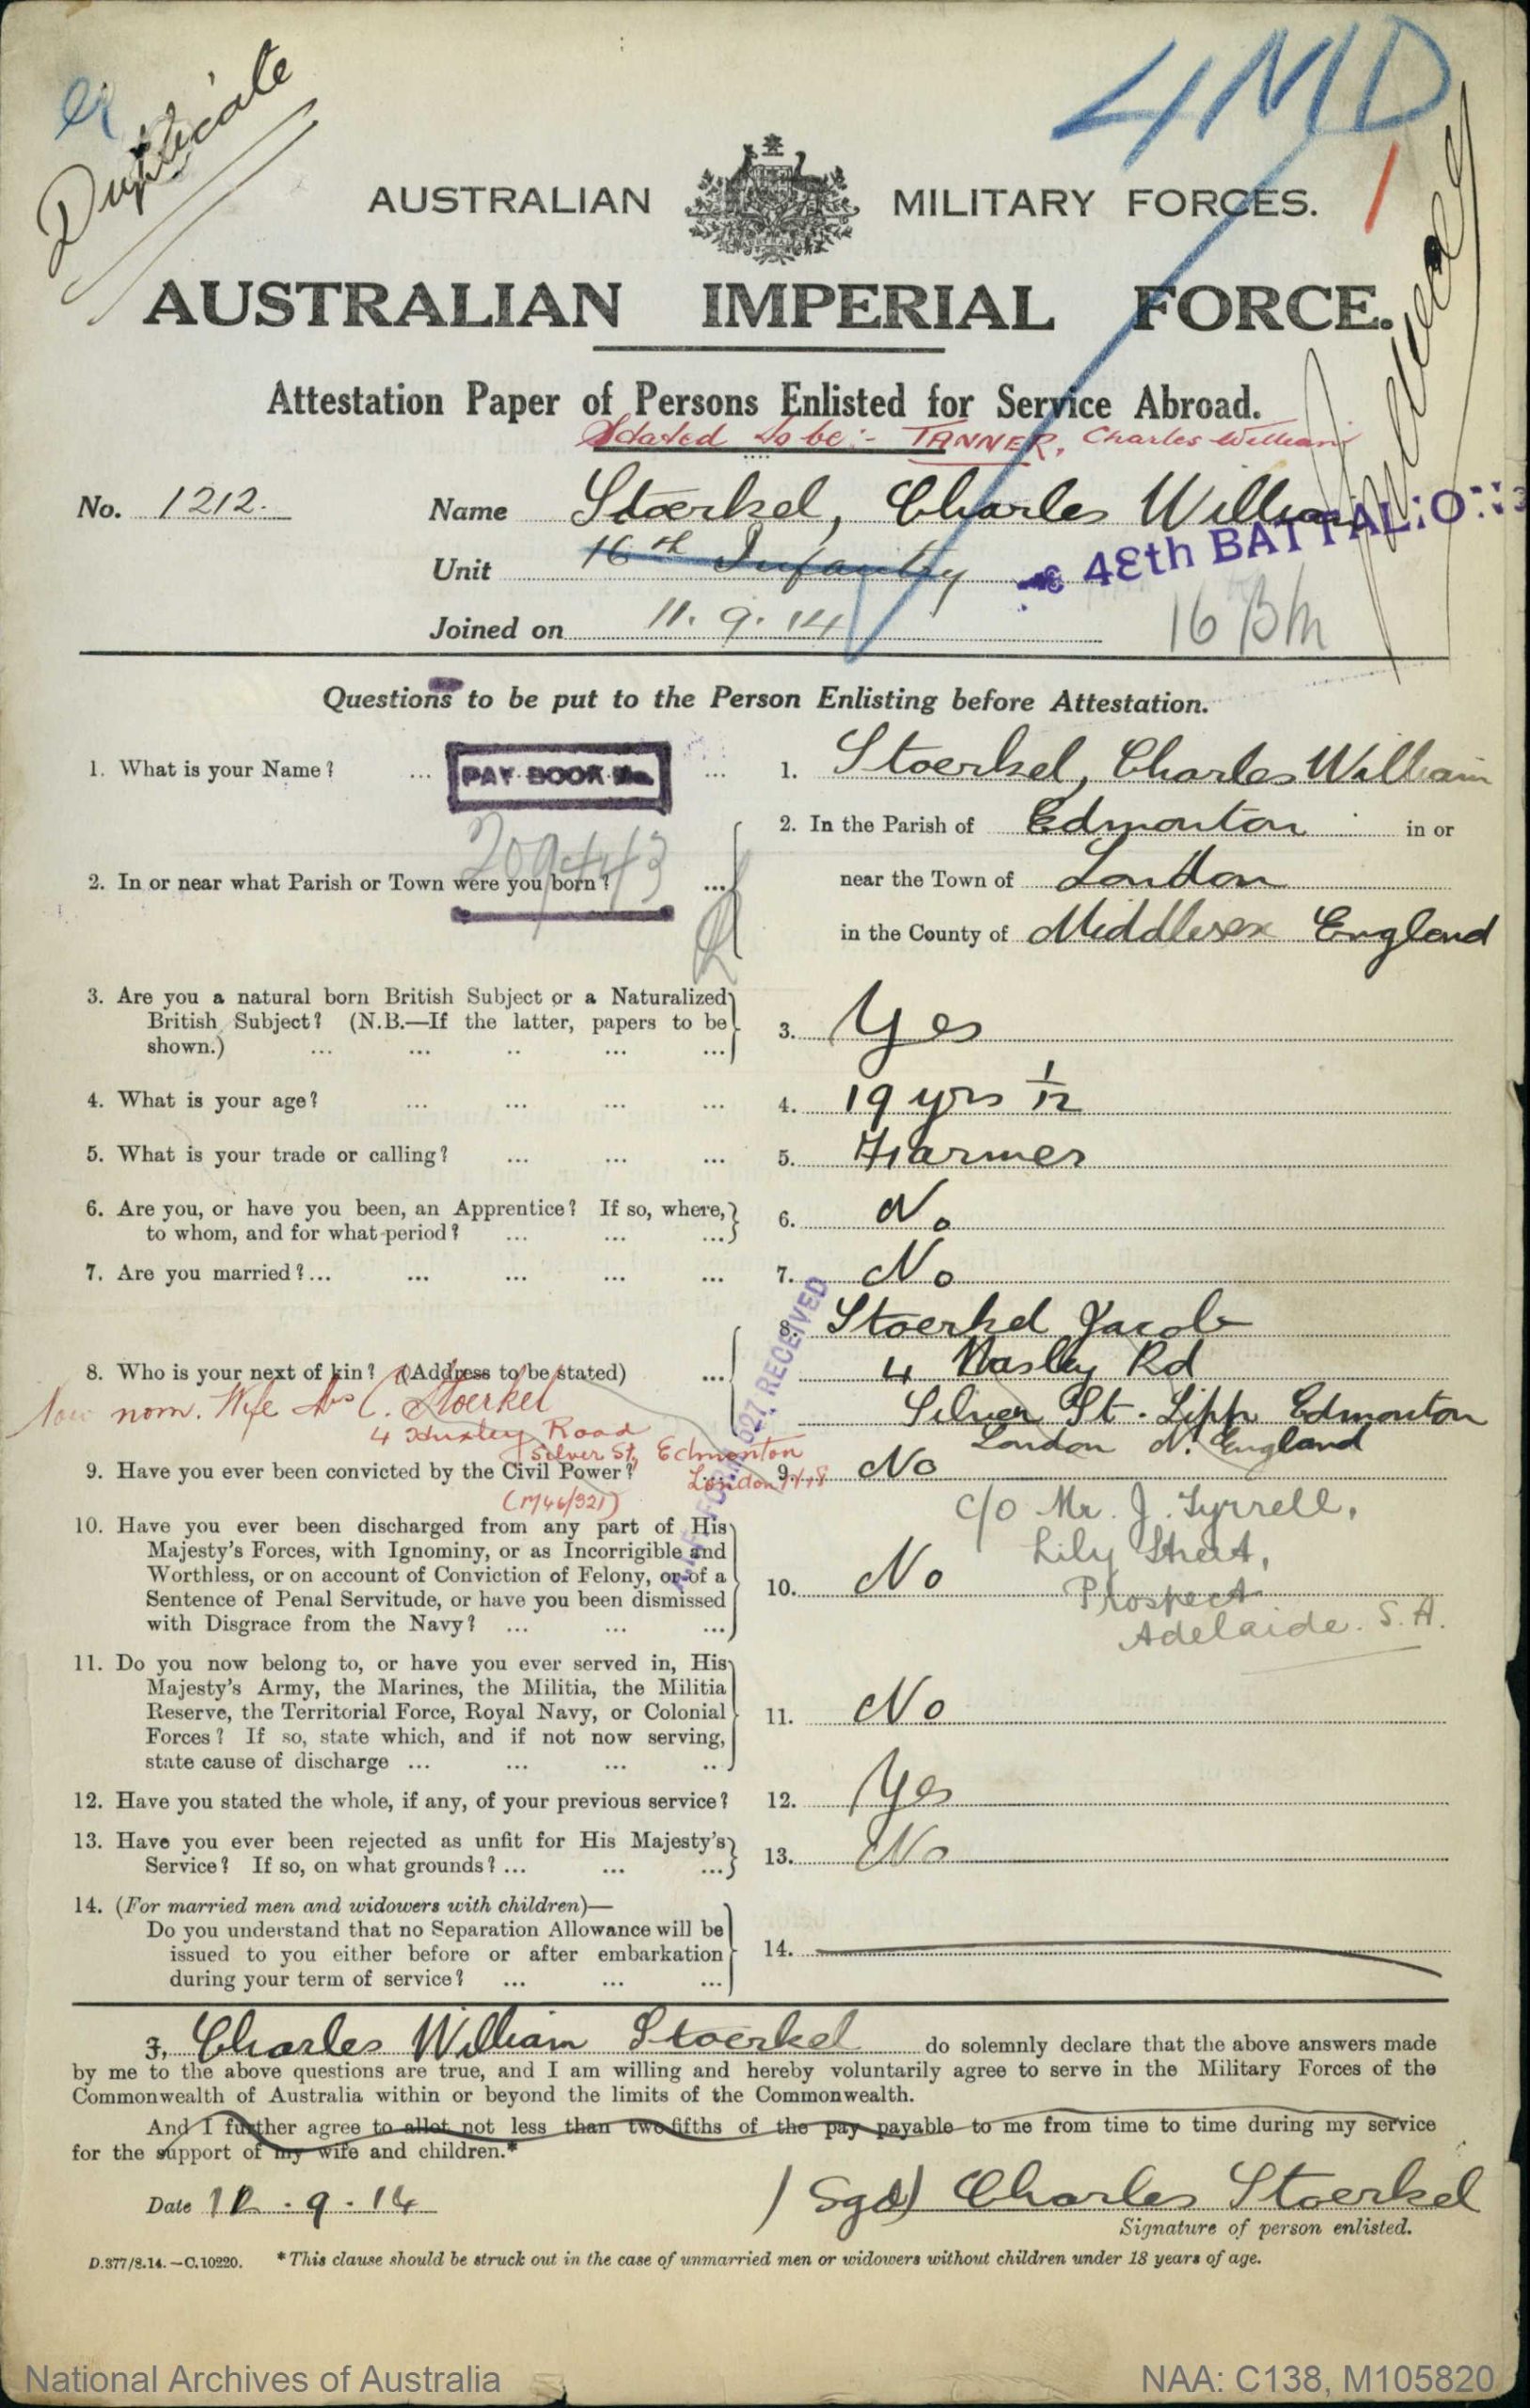 Duplicate
4MD
1
AUSTRALIAN MILITARY FORCES.
AUSTRALIAN IMPERIAL FORCE.
Attestation Paper of Persons Enlisted for Service Abroad.
Stated to be:- TANNER, Charles William
No. 1212. Name Stoerkel, Charles William
Unit 16th Infantry 48th BATTALION
Joined on 11.9.14 16 Bn
Questions to be put to the Person Enlisting before Attestation.
1. What is your Name? ... PAY BOOK No. ... 1. Stoerkel, Charles William
2. In the Parish of Edmonton in or
2. In or near what Parish or Town were you born? ... near the Town of London
in the County of Middlesex England
3. Are you a natural born British Subject or a Naturalized
British Subject? (N.B.—If the latter, papers to be
shown.) ... ... .. ... ... 3. Yes
4. What is your age? ... ... ... ... 4. 19 yrs 1/12
5. What is your trade or calling? ... ... ... 5. Farmer
6. Are you, or have you been, an Apprentice? If so, where,
to whom, and for what period? ... ... ... 6. No
7. Are you married?... ... ... ... ... 7. No
8. Stoerkel Jacob
8. Who is your next of kin? (Address to be stated) ... 4 Rd
Now nom. Wife Mrs C. Stoerkel
Silver St. Edmonton
4 Huxley Road
London N. England
Silver St, Edmonton
London N18
(17/46/321)
9. Have you ever been convicted by the Civil Power? 9. No
c/o Mr. J. Tyrrell,
Lily Street,
Prospect
Adelaide. S.A.
10. Have you ever been discharged from any part of His
Majesty's Forces, with Ignominy, or as Incorrigible and
Worthless, or on account of Conviction of Felony, or of a
Sentence of Penal Servitude, or have you been dismissed
with Disgrace from the Navy? ... ... ... 10. No
11. Do you now belong to, or have you ever served in, His
Majesty's Army, the Marines, the Militia, the Militia
Reserve, the Territorial Force, Royal Navy, or Colonial
Forces? If so, state which, and if not now serving,
state cause of discharge ... ... ... .. 11. No
12. Have you stated the whole, if any, of your previous service? 12. Yes
13. Have you ever been rejected as unfit for His Majesty's
Service? If so, on what grounds? ... ... ... 13. No
14. (For married men and widowers with children)—
Do you understand that no Separation Allowance will be
issued to you either before or after embarkation
during your term of service? ... ... ... 14.
I, Charles William Stoerkel do solemnly declare that the above answers made
by me to the above questions are true, and I am willing and hereby voluntarily agree to serve in the Military Forces of the
Commonwealth of Australia within or beyond the limits of the Commonwealth.
And I further agree to allot not less than two-fifths of the pay payable to me from time to time during my service
for the support of my wife and children.*
Date 12.9.14 (Sgd) Charles Stoerkel
Signature of person enlisted.
D.377/8.14.—C.10220. *This clause should be struck out in the case of unmarried men or widowers without children under 18 years of age.
National Archives of Australia NAA: C138, M105820